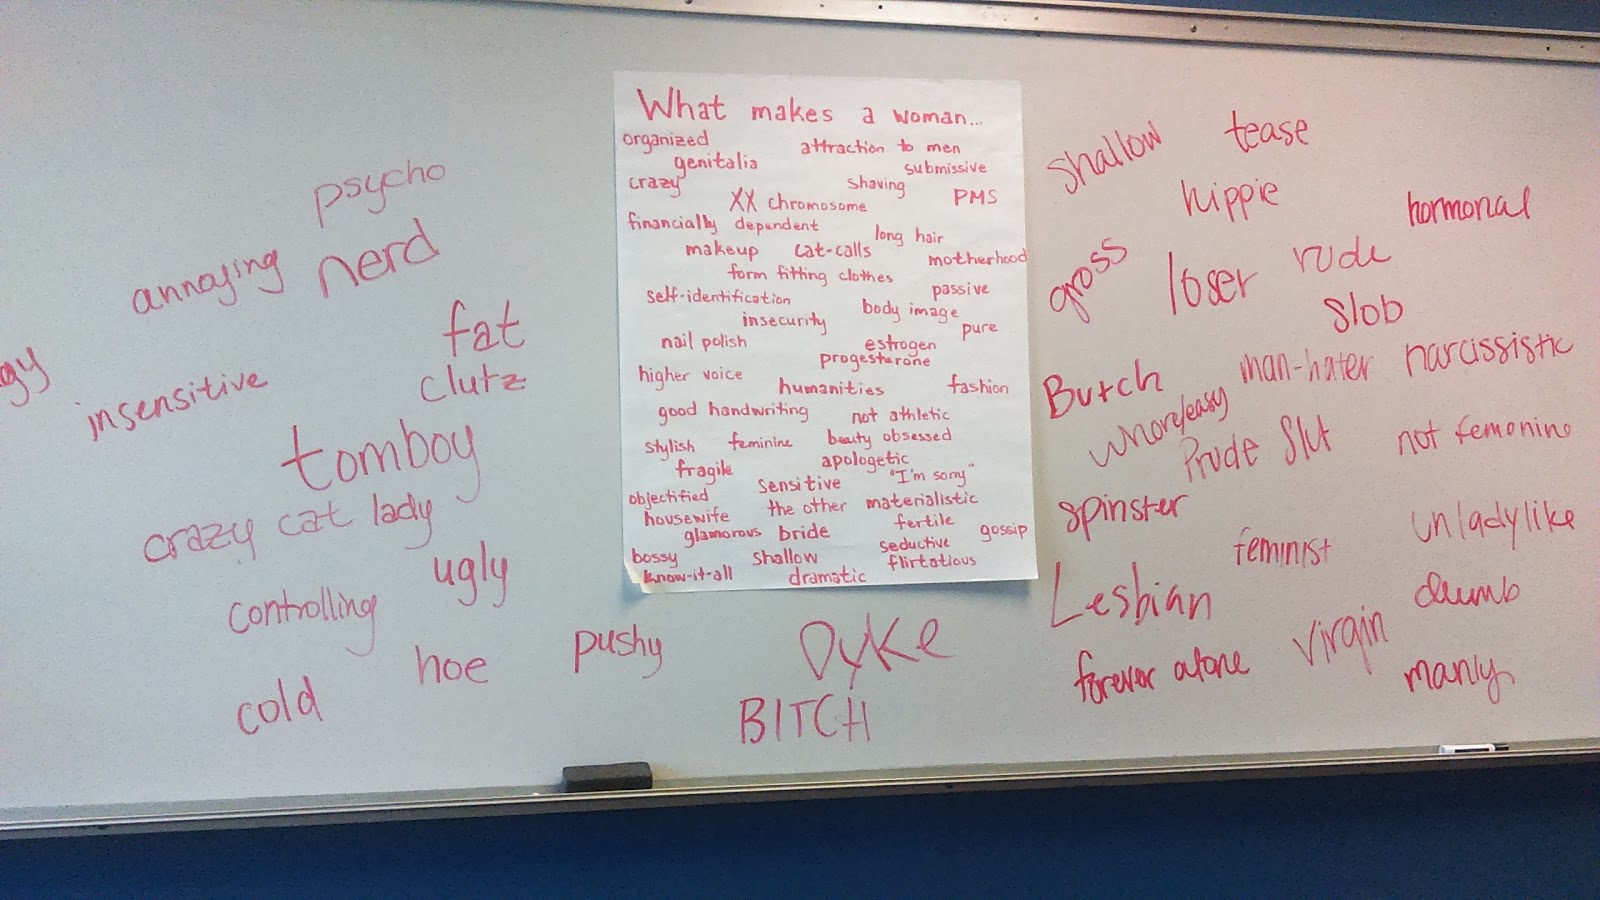 psycho
annoying nerd
fat
gy
insensitive
clutz
tomboy
crazy cat lady
ugly
controlling
hoe
cold
pushy
What makes a woman...
organized attraction to men
genitalia submissive
crazy shaving PMS
XX chromosome
financially dependent long hair
makeup cat-calls motherhood
form fitting clothes
self-identification passive
body image
insecurity pure
nail polish estrogen
progesterone
higher voice humanities fashion
good handwriting not athletic
stylish feminine beauty obsessed
fragile apologetic
objectified sensitive "I'm sorry"
housewife the other materialistic
glamorous bride fertile gossip
bossy shallow seductive
know-it-all dramatic flirtatious
Dyke
BITCH
shallow tease
hippie hormonal
gross loser rude
slob
Butch man-hater narcissistic
whore/easy
Prude Slut not femonine
spinster
feminist unladylike
Lesbian dumb
forever alone virgin
manly